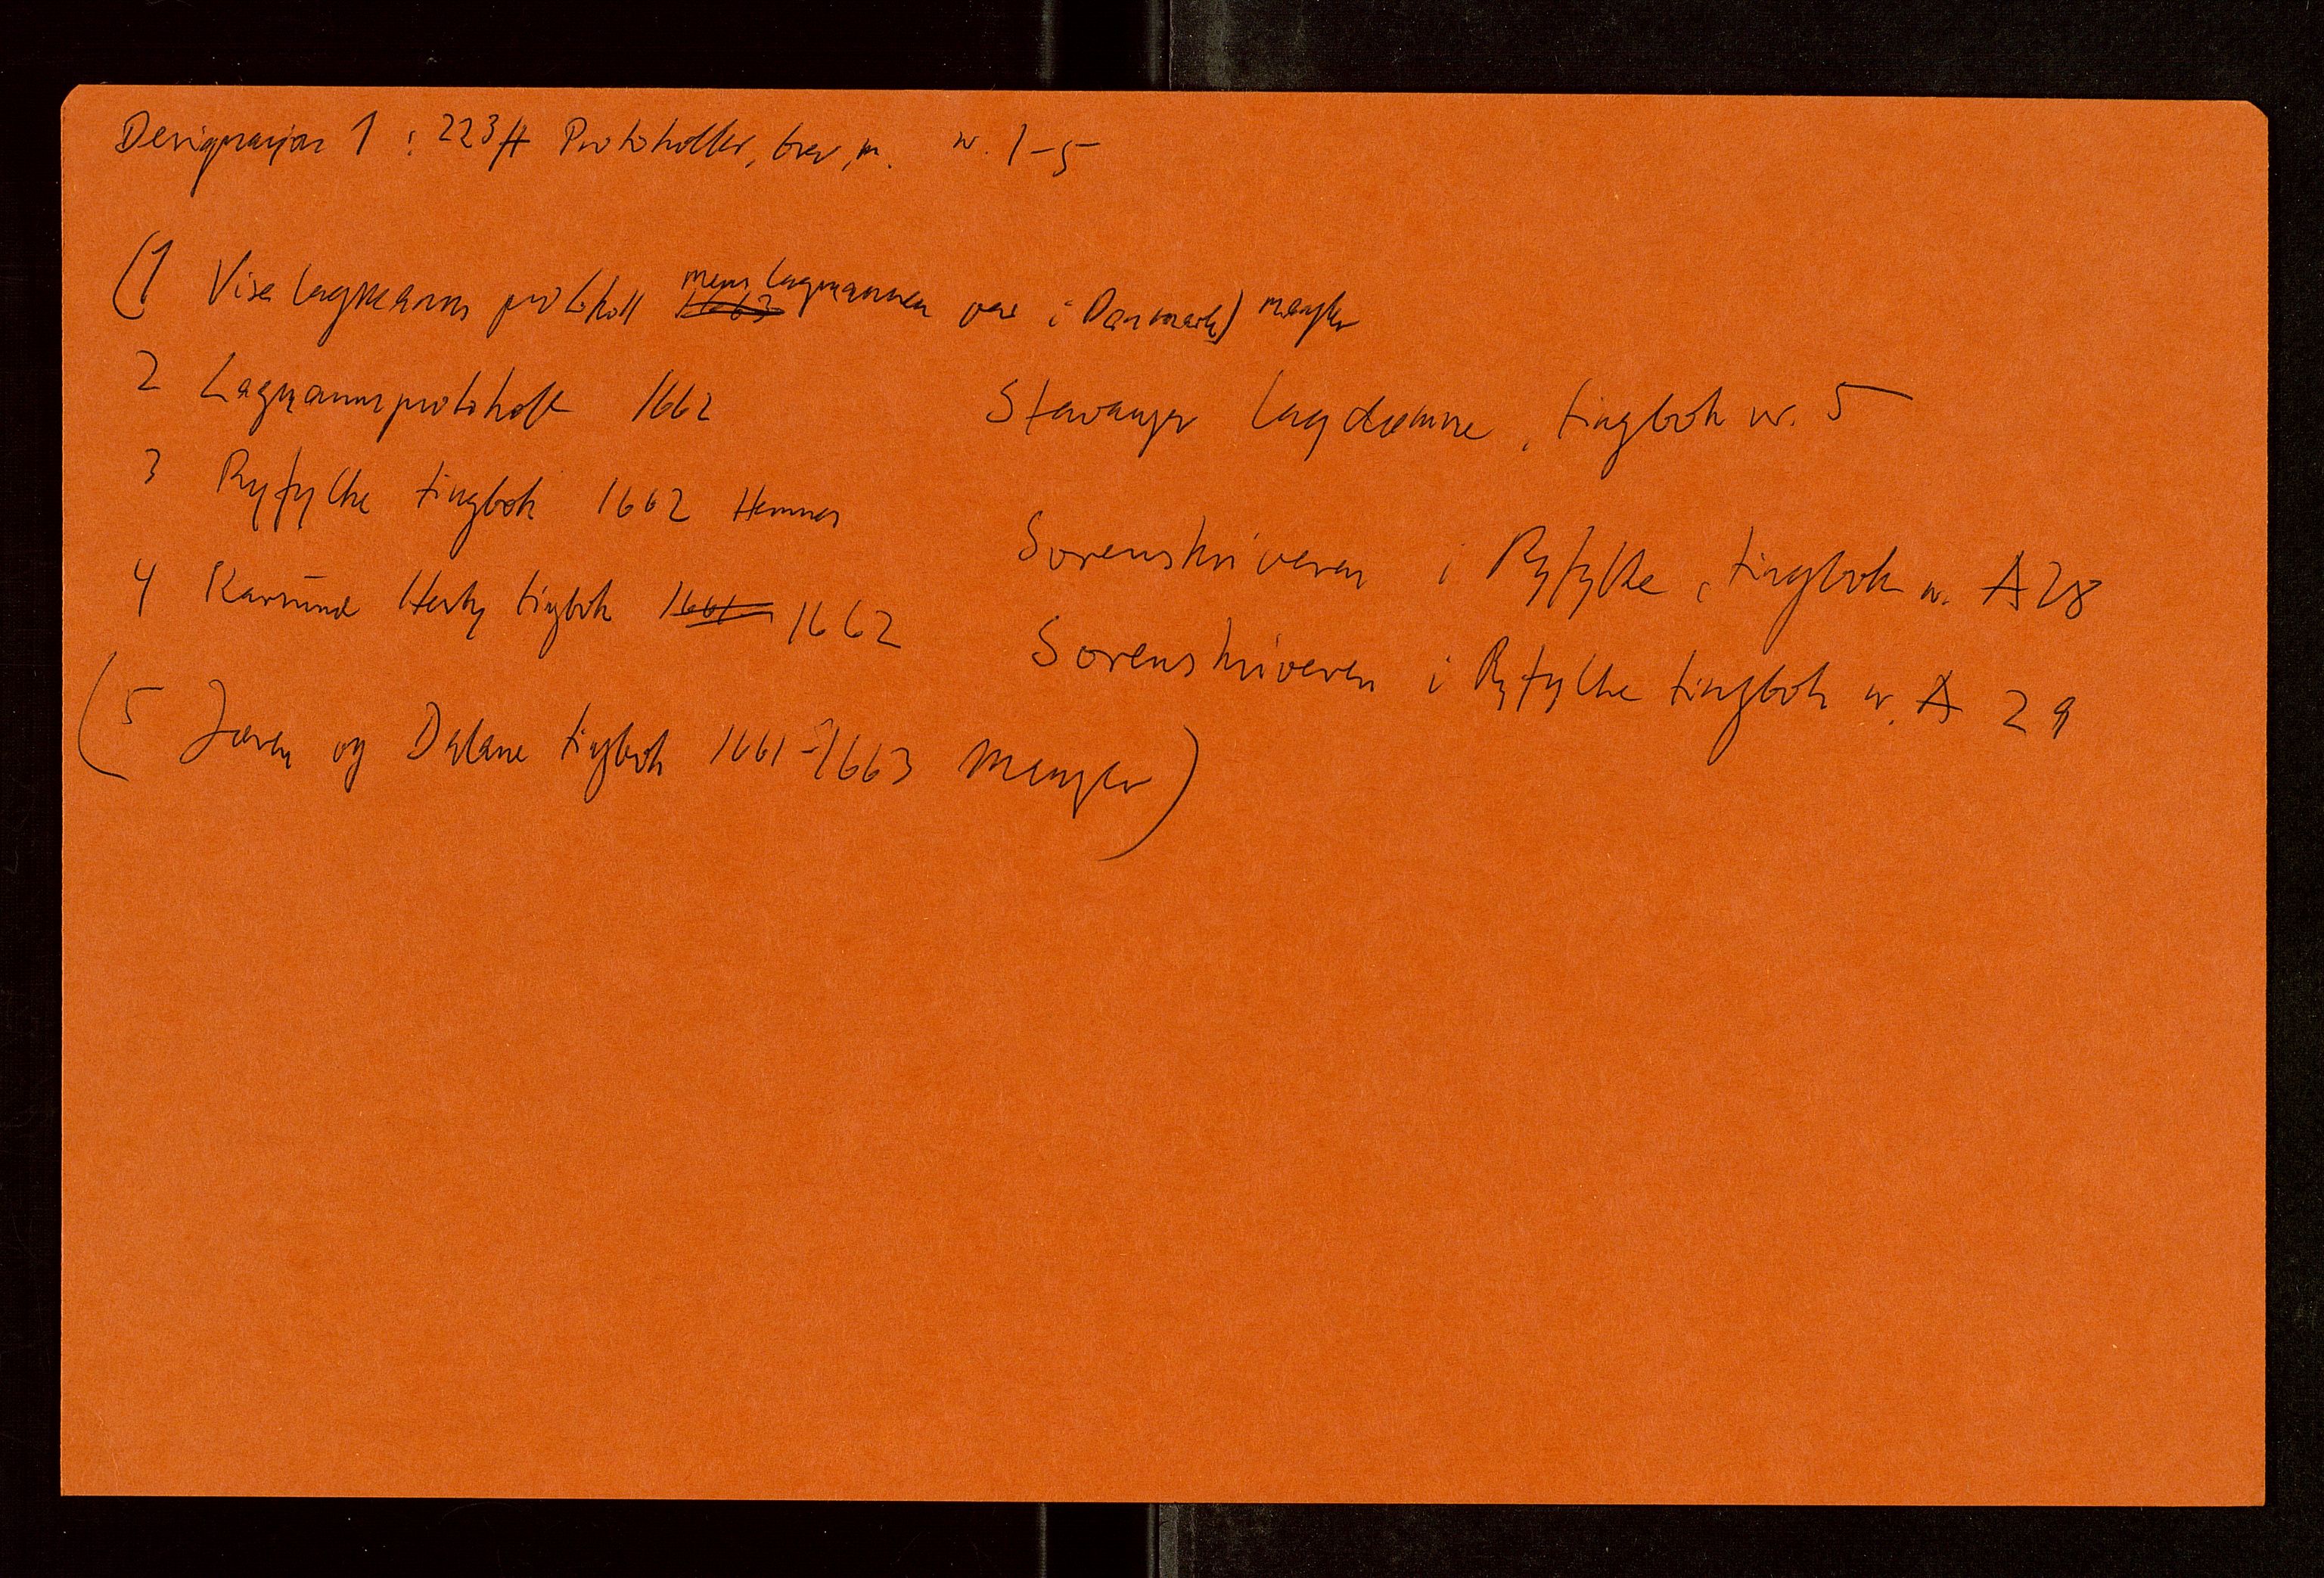 Designasjon 1 : 223 ff Protokoller, brev, m. nr. 1-5
(1 Viselagmanns protokoll 1663 mens lagmannen var i Danmark) mangler
2 Lagmannsprotokoll 1662 Stavanger lagdømme, tingbok nr. 5
3 Ryfylke tingbok 1662 Sorenskriveren i Ryfylke, tingbok nr. A 28
4 Karmsund tingbok 1661 1662 Sorenskriveren i Ryfylke tingbok nr. A 29
(5 Jæren og Dalane tingbok 1661-1663 Mangler)